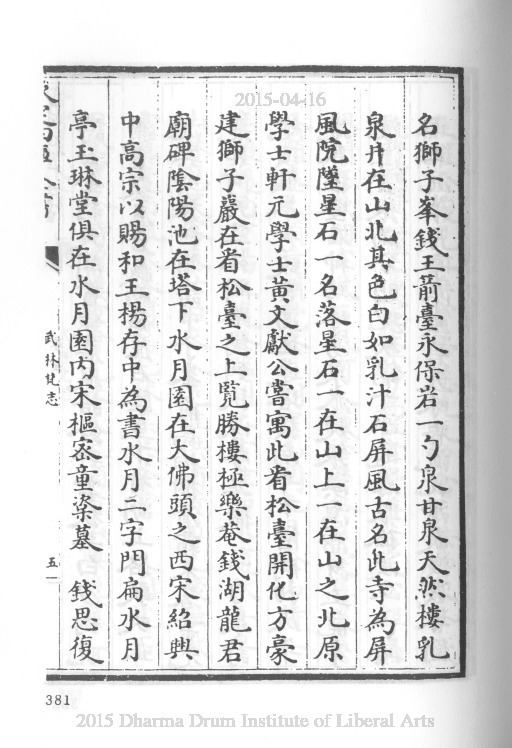 2015-04-16
名獅子峯錢王箭臺永保岩一勺泉甘泉天然樓乳
泉井在山北其色白如乳汁石屏風古名此寺為屏
風院墜星石一名落星石一在山上一在山之北原
學士軒元學士黃文獻公嘗寓此看松臺開化方豪
建獅子巖在看松臺之上覧勝樓極樂菴錢湖龍君
廟碑陰陽池在塔下水月園在大佛頭之西宋紹興
中高宗以賜和王楊存中為書水月二字門扁水月
亭玉琳堂俱在水月園内宋樞宻童楶墓　錢思復
武林梵志
五
381
2015 Dharma Drum Institute of Liberal Arts